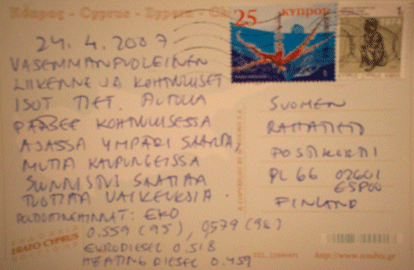 Κύπρος - Cyprus - Zypern
25 ΚΥΠΡΟΣ
24.4.2007
VASEMMANPUOLEINEN
LIIKENNE JA KOHTUULLISET
ISOT TIET. AUTOLLA
PÄÄSEE KOHTUULLISESSA
AJASSA YMPÄRI SAARTA,
MUTTA KAUPUNGEISSA
SUNNISTUS SAATTAA
TUOTTAA VAIKEUKSIA.
POLTTOAINEHINNAT: EKO
0.559 (95), 0579 (98)
EURODIESEL 0.518
HEATING DIESEL 0.459
SUOMEN
POSTIKORTTI
PL 66 02601
ESPOO
FINLAND
ERATO CYPRUS